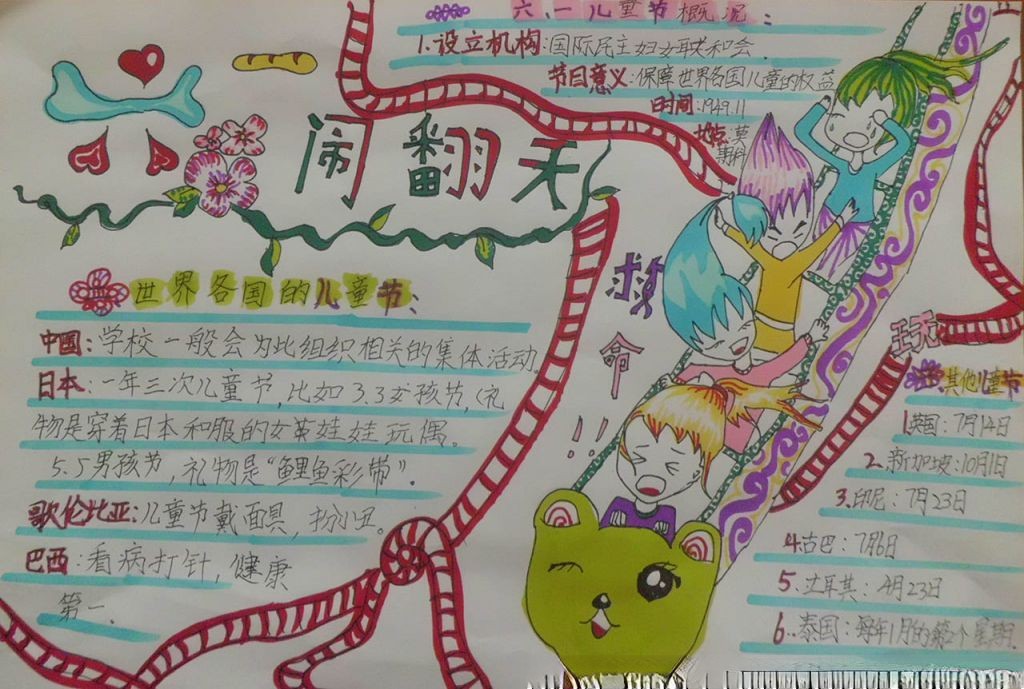 闹翻天
六.一儿童节概况:
1.设立机构:国际民主妇女联和会.
节日意义:保障世界各国儿童的权益
时间:1949.11
地点:莫斯科
世界各国的儿童节:
中国:学校一般会为此组织相关的集体活动.
日本:一年三次儿童节,比如3.3女孩节,(礼
物是穿着日本和服的女英娃娃玩偶.
5.5男孩节,礼物是"鲤鱼彩带".
歌伦比亚:儿童节戴面具,扮小丑.
巴西:看病打针,健康
第一.
救命!!
其他儿童节
1.英国:7月14日
2.新加坡:10月1日
3.印尼:7月23日
4.古巴:7月6日
5.土耳其:4月23日
6..泰国:每年1月的第2个星期.